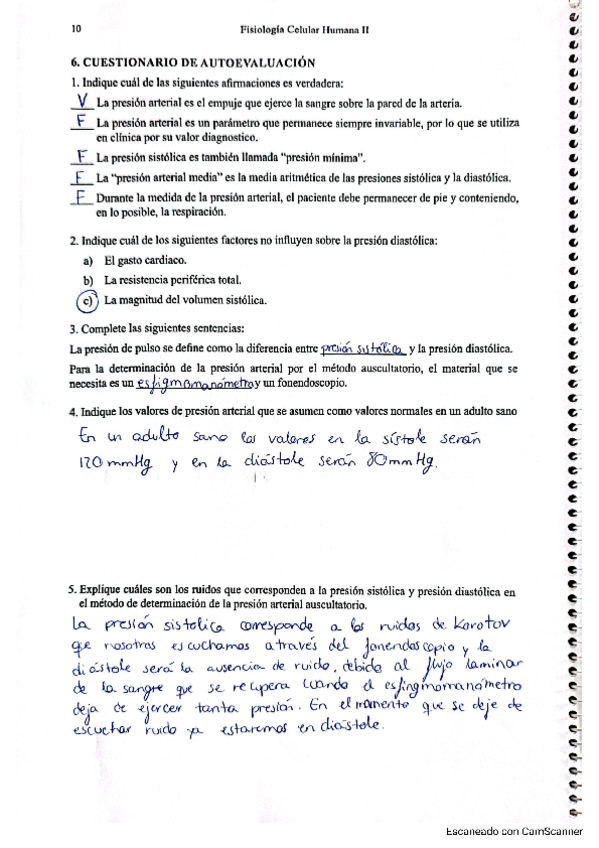 10 Fisiología Celular Humana II
6. CUESTIONARIO DE AUTOEVALUACIÓN
1. Indique cuál de las siguientes afirmaciones es verdadera:
V La presión arterial es el empuje que ejerce la sangre sobre la pared de la arteria.
F La presión arterial es un parámetro que permanece siempre invariable, por lo que se utiliza
en clínica por su valor diagnostico.
F La presión sistólica es también llamada "presión mínima".
F La "presión arterial media" es la media aritmética de las presiones sistólica y la diastólica.
F Durante la medida de la presión arterial, el paciente debe permanecer de pie y conteniendo,
en lo posible, la respiración.
2. Indique cuál de los siguientes factores no influyen sobre la presión diastólica:
a) El gasto cardiaco.
b) La resistencia periférica total.
c) La magnitud del volumen sistólica.
3. Complete las siguientes sentencias:
La presión de pulso se define como la diferencia entre presión sistólica y la presión diastólica.
Para la determinación de la presión arterial por el método auscultatorio, el material que se
necesita es un esfigmomanómetro y un fonendoscopio.
4. Indique los valores de presión arterial que se asumen como valores normales en un adulto sano
En un adulto sano los valores en la sístole serán
120 mmHg y en la diástole serán 80 mmHg.
5. Explique cuáles son los ruidos que corresponden a la presión sistólica y presión diastólica en
el método de determinación de la presión arterial auscultatorio.
La presión sistolica corresponde a los ruidos de Korotov
que nosotros escuchamos através del fonendoscopio y la
diástole será la ausencia de ruido, debido al flujo laminar
de la sangre que se recupera cuando el esfingmomanómetro
deja de ejercer tanta presión. En el momento que se deje de
escuchar ruido ya estaremos en diástole.
Escaneado con CamScanner